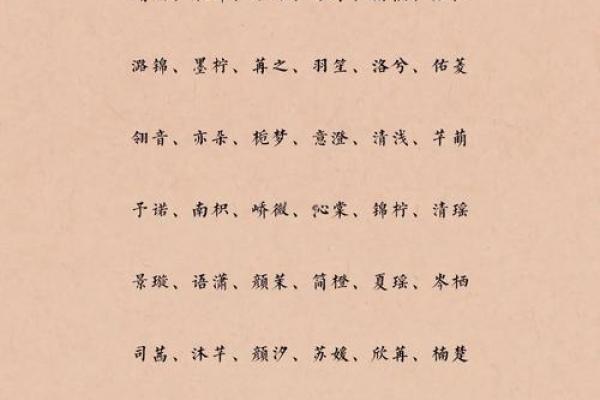 潞锦、墨柠、苒之、羽笙、洛兮、佑菱
翎音、亦朵、栀梦、意澄、清浅、芊萌
予诺、南枳、峤微、沁棠、锦柠、清瑶
景璇、语潇、颜茉、简橙、夏瑶、岑栖
司茜、沐芊、颜汐、苏媛、欣苒、楠楚